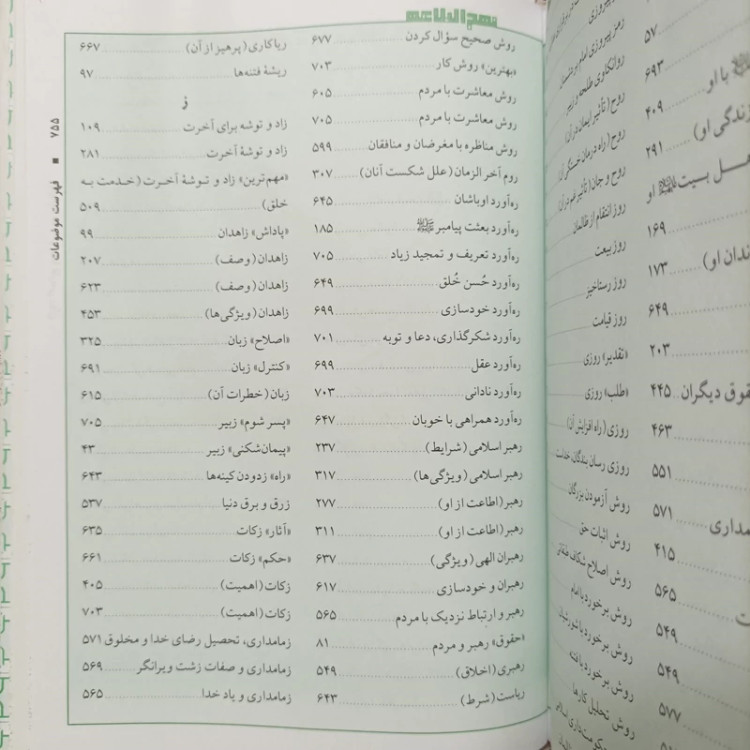 نهج البلاغه
روش صحیح سؤال کردن ۶۷۷
«بهترین» روش کار ۷۰۳
روش معاشرت با مردم ۶۰۵
روش معاشرت با مردم ۷۰۵
روش مناظره با مغرضان و منافقان ۵۹۹
روم آخر الزمان (علل شکست آنان) ۳۰۷
ره‌آورد اوباشان ۶۴۵
ره‌آورد بعثت پیامبرﷺ ۱۸۵
ره‌آورد تعریف و تمجید زیاد ۷۰۵
ره‌آورد حُسن خُلق ۶۴۹
ره‌آورد خودسازی ۶۹۹
ره‌آورد شکرگذاری، دعا و توبه ۷۰۱
ره‌آورد عقل ۶۹۹
ره‌آورد نادانی ۷۰۳
ره‌آورد همراهی با خوبان ۶۴۷
رهبر اسلامی (شرایط) ۲۳۷
رهبر اسلامی (ویژگی‌ها) ۳۱۷
رهبر (اطاعت از او) ۲۷۷
رهبر (اطاعت از او) ۳۱۱
رهبران الهی (ویژگی) ۶۳۷
رهبران و خودسازی ۶۱۷
رهبر و ارتباط نزدیک با مردم ۵۶۵
«حقوق» رهبر و مردم ۸۱
رهبری (اخلاق) ۵۴۹
ریاست (شرط) ۶۴۳
ریاکاری (پرهیز از آن) ۶۶۷
ریشهٔ فتنه‌ها ۹۷
ز
زاد و توشه برای آخرت ۱۰۹
زاد و توشهٔ آخرت ۲۸۱
«مهم‌ترین» زاد و توشهٔ آخرت (خدمت به
خلق) ۵۰۹
«پاداش» زاهدان ۹۹
زاهدان (وصف) ۲۰۷
زاهدان (وصف) ۶۲۳
زاهدان (ویژگی‌ها) ۴۵۳
«اصلاح» زبان ۳۲۵
«کنترل» زبان ۶۹۱
زبان (خطرات آن) ۶۱۵
«پسر شوم» زبیر ۷۰۵
«پیمان‌شکنی» زبیر ۴۳
«راه» زدودن کینه‌ها ۶۴۳
زرق و برق دنیا ۵۳۷
«آثار» زکات ۶۳۵
«حکم» زکات ۶۶۱
زکات (اهمیت) ۴۰۵
زکات (اهمیت) ۷۰۳
زمامداری، تحصیل رضای خدا و مخلوق ۵۷۱
زمامداری و صفات زشت ویرانگر ۵۶۹
زمامداری و یاد خدا ۵۶۵
فهرست موضوعات ■ ۷۵۵
روانکاوی طلحه و زبیر
روح (تأثیر ایمان در آن)
روح (راه درمان خستگی آن)
روز انتقام از ظالمان
روز بیعت
روز رستاخیز
روز قیامت
«تقدیر» روزی
«طلب» روزی
روزی (راه افزایش آن)
روش آزمودن بزرگان
روش اثبات حق
روش برخورد با امام
روش تحلیل کارها
۵۷
۶۹۳
۴۰۹
زندگی او) ۲۹۱
۱۶۹
۱۷۳
۶۴۹
۲۰۳
حقوق دیگران ۴۴۵
۴۶۳
۵۵۱
۵۷۱
۴۱۵
۵۶۵
۵۴۹
۵۴۹
۵۷۷